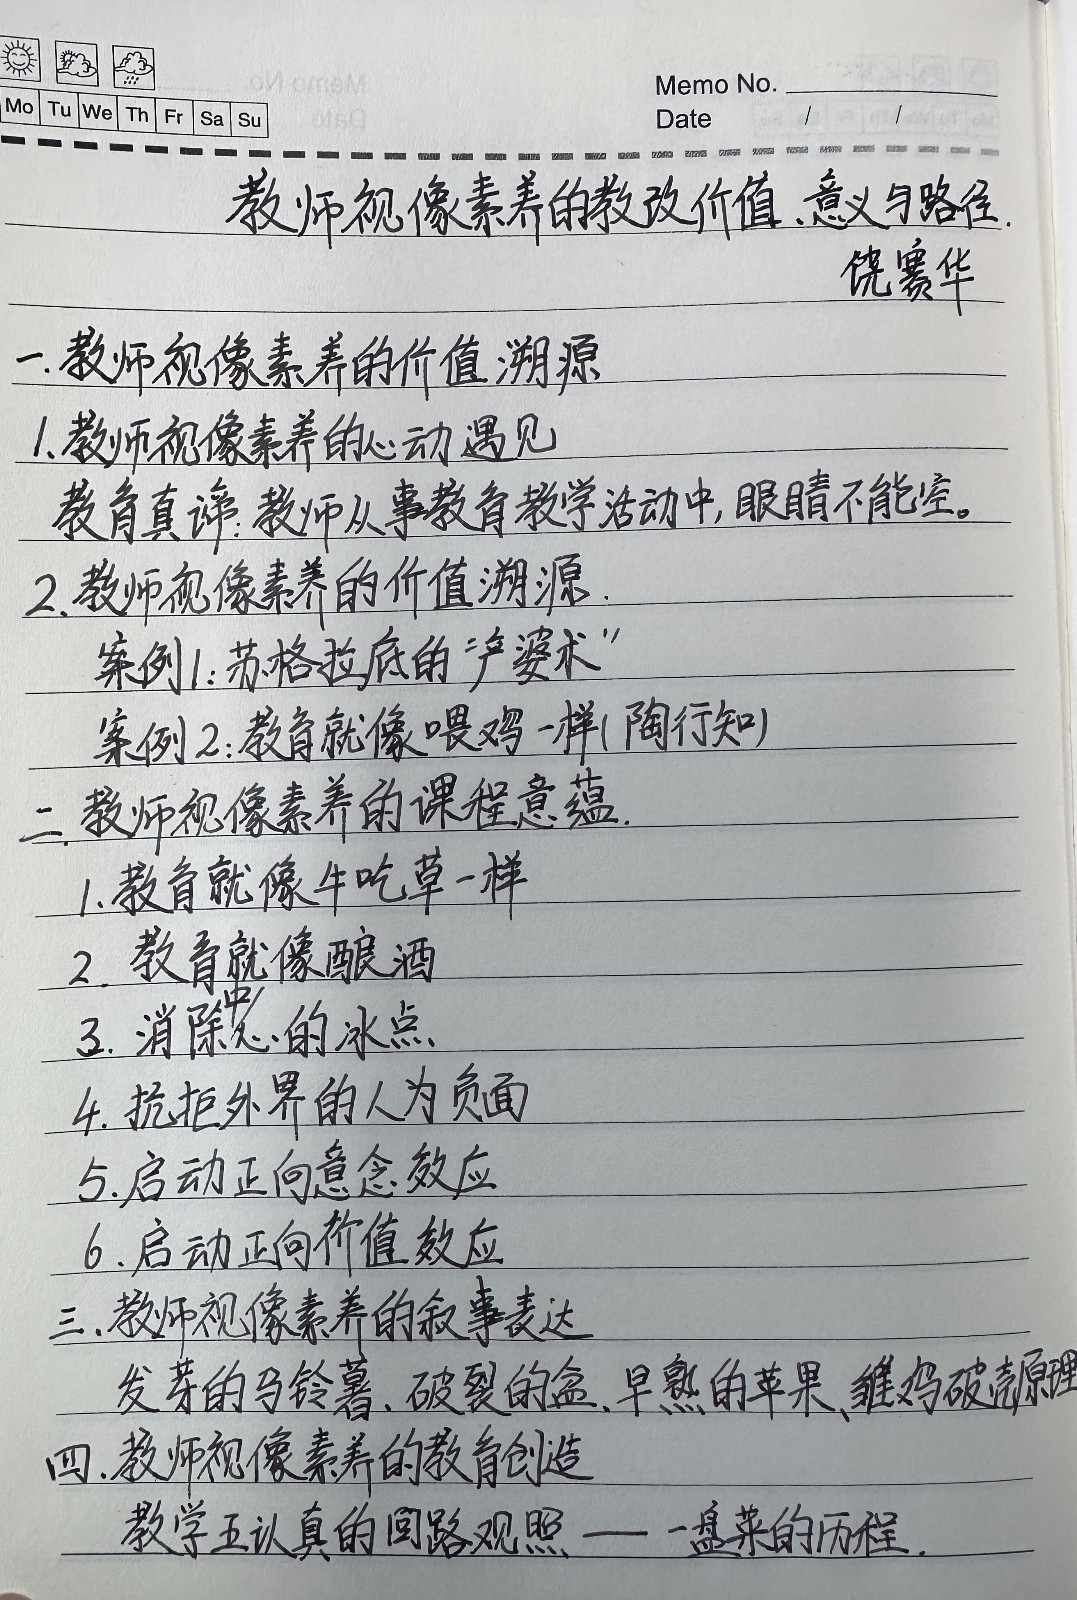 Mo Tu We Th Fr Sa Su
Memo No.
Date / /
教师视像素养的教改价值、意义与路径.
饶赛华
一.教师视像素养的价值溯源
1.教师视像素养的心动遇见
教育真谛:教师从事教育教学活动中,眼睛不能空。
2.教师视像素养的价值溯源.
案例1:苏格拉底的“产婆术”
案例2:教育就像喂鸡一样(陶行知)
二.教师视像素养的课程意蕴.
1.教育就像牛吃草一样
2.教育就像酿酒
3.消除心中的冰点
4.抗拒外界的人为负面
5.启动正向意念效应
6.启动正向价值效应
三.教师视像素养的叙事表达
发芽的马铃薯、破裂的盆、早熟的苹果、雏鸡破壳原理
四.教师视像素养的教育创造
教学五认真的回路观照——一盘菜的历程.